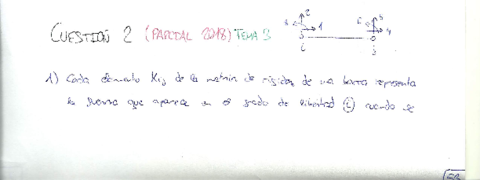 CUESTIÓN 2 (PARCIAL 2018) TEMA 3
1) Cada elemento Kij de la matriz de rigidez de una barra representa
la fuerza que aparece en el grado de libertad (i) cuando se